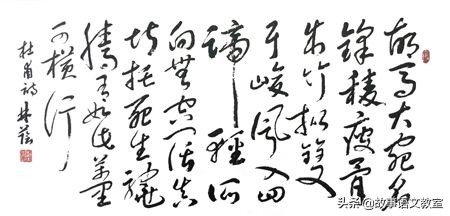 胡馬大宛名
鋒棱瘦骨
成竹批雙
耳峻風入四
蹄輕所
向無空闊真
堪托死生驍
騰有如此萬里
可橫行
杜甫詩 林
头条 @故事语文教室